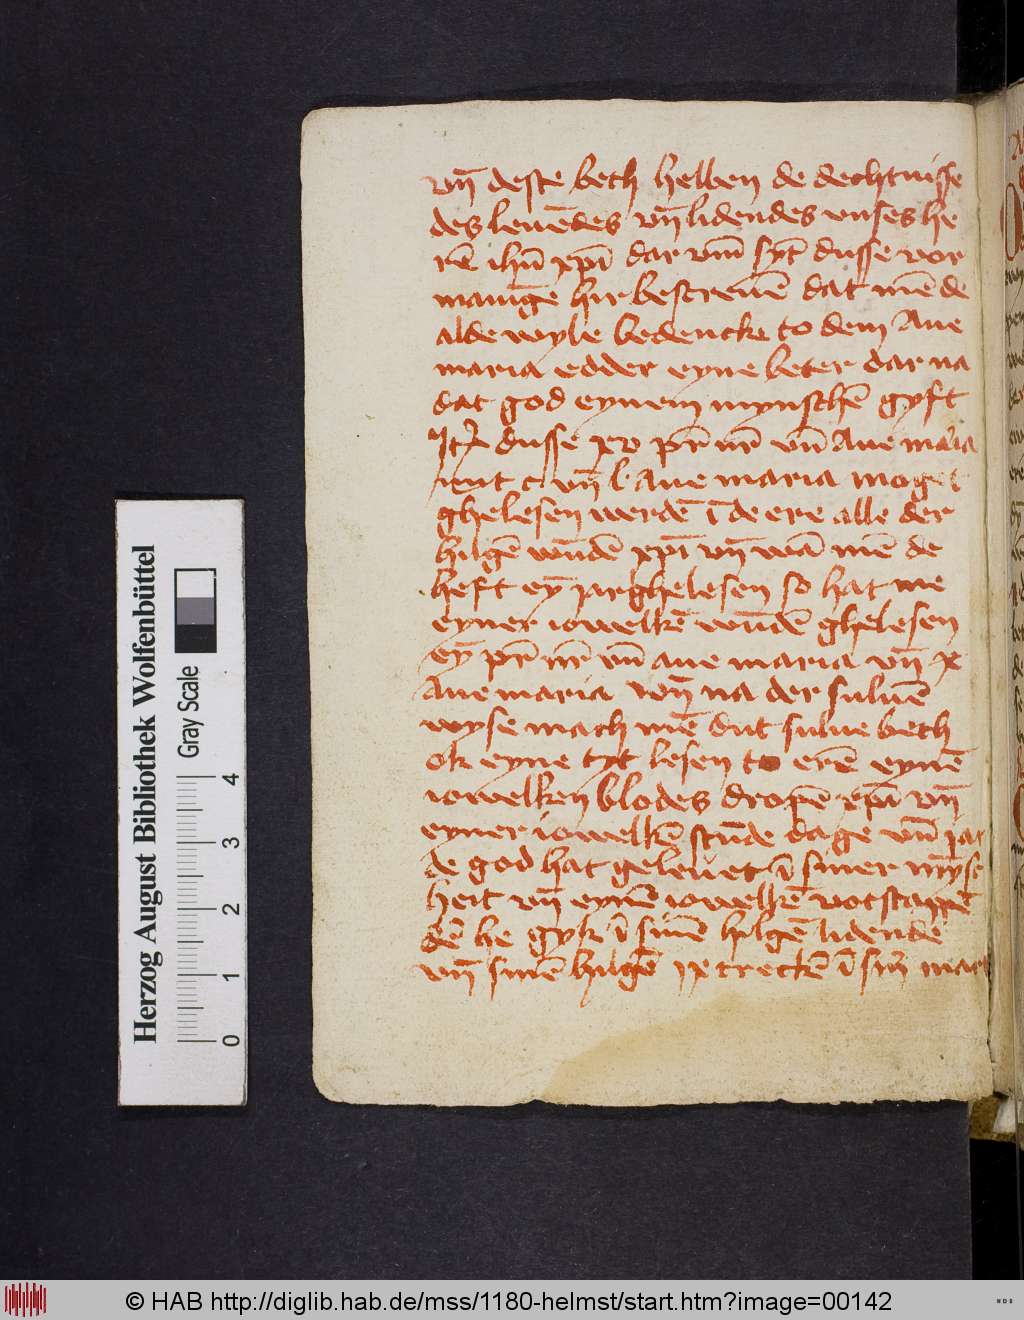 vn̄ deste beth helben de dechtnisse
des leuēdes vn̄ lidendes vnses he
rē ihū xpī dar vm̄ sȳt dusse vor
maninge hir bescreuē dat mē de
alde wyle bedencke to dem Aue
maria edder eyne beter dar na
dat god eynem mynschē gyft
dusse xv pr̄ nr̄ vn̄ Aue maria
mit c vn̄ l Aue maria moget
ghelesen werdē ī de ere alle der
hilgē wūdē xpī vn̄ wā mē de
heft eȳ jar ghelesen so hat me
eyner iowelkē wūdē ghelesen
eȳ pr̄ nr̄ vn̄ aue maria vn̄ x
Aue maria vn̄ na der suluē
wyse mach mē dut sulue beth
ok eyne tyt lesen to erē eynē
iowelken blodes dropē xpī vn̄
eyner iowelkē stūde dage vn̄ jar
de god hat geleuet ī siner mȳsc
heit vn̄ eynē iowelkē votstappē
dē he gyk ī sinē hilgē lidende
vn̄ sinē hilgē ī sin̄
Herzog August Bibliothek Wolfenbüttel
Gray Scale
0 1 2 3 4
© HAB http://diglib.hab.de/mss/1180-helmst/start.htm?image=00142